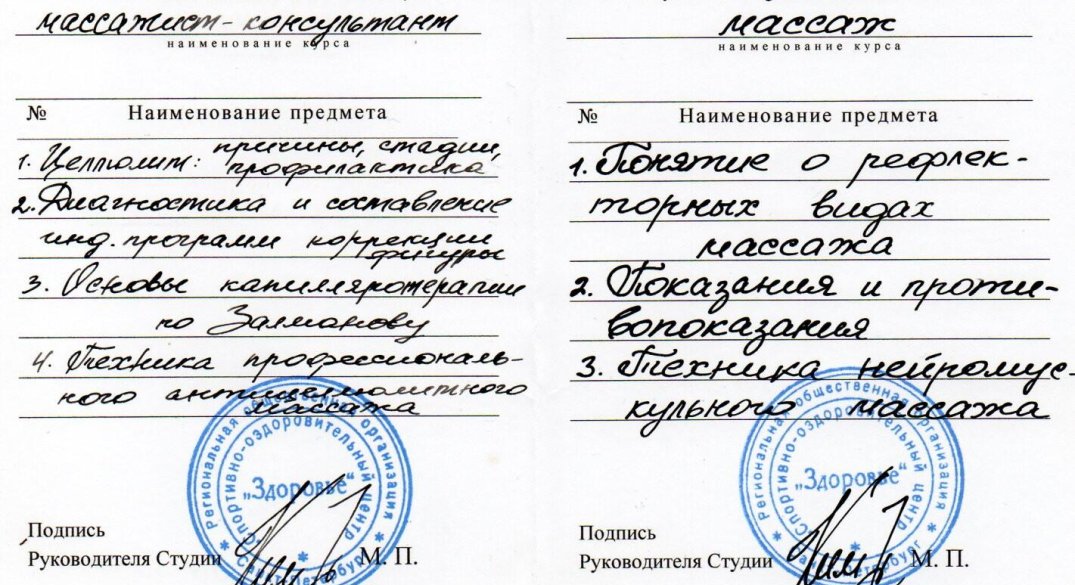 массажист-консультант
наименование курса
№ Наименование предмета
1. Целлюлит: причины, стадии,
профилактика
2. Диагностика и составление
инд. программ коррекции
фигуры
3. Основы капилляротерапии
по Залманову
4. Техника профессиональ-
ного антицеллюлитного
массажа
Региональная общественная организация
Спортивно-оздоровительный центр
„Здоровье“
Санкт-Петербург
Подпись
Руководителя Студии М. П.
массаж
наименование курса
№ Наименование предмета
1. Понятие о рефлек-
торных видах
массажа
2. Показания и проти-
вопоказания
3. Техника нейромус-
кульного массажа
Региональная общественная организация
Спортивно-оздоровительный центр
„Здоровье“
Подпись
Руководителя Студии М. П.